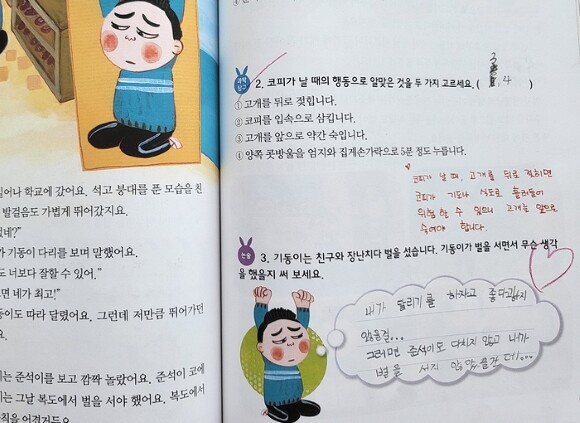 일어나 학교에 갔어요. 석고 붕대를 푼 모습을 친
발걸음도 가볍게 뛰어갔지요.
없네?”
가 기동이 다리를 보며 말했어요.
도 너보다 잘할 수 있어.”
면 네가 최고!”
동이도 따라 달렸어요. 그런데 저만큼 뛰어가던
이는 준석이를 보고 깜짝 놀랐어요. 준석이 코에
이는 그날 복도에서 벌을 서야 했어요. 복도에서
칙을 어겼거든요.
2. 코피가 날 때의 행동으로 알맞은 것을 두 가지 고르세요. ( 3, 4 )
① 고개를 뒤로 젖힙니다.
② 코피를 입속으로 삼킵니다.
③ 고개를 앞으로 약간 숙입니다.
④ 양쪽 콧방울을 엄지와 집게손가락으로 5분 정도 누릅니다.
코피가 날 때, 고개를 뒤로 젖히면
코피가 기도나 식도로 흘러들어
위험할 수 있으니 고개는 앞으로
숙여야 합니다.
논술
3. 기동이는 친구와 장난치다 벌을 섰습니다. 기동이가 벌을 서면서 무슨 생각
을 했을지 써 보세요.
내가 달리기를 하자고 좋다고하지
않을걸...
그러면 준석이도 다치지 않고 내가
벌을 서지 않았을 텐데...